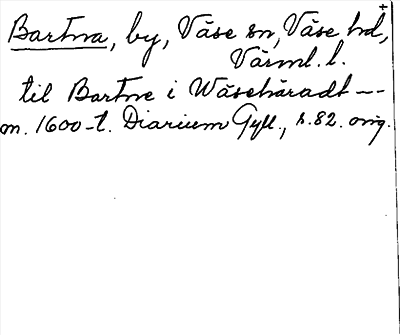 Bartna, by, Väse sn, Väse hd,
Värml. l.
til Bartne i Wäsehäradt --
m. 1600-t. Diarium Gyll., s. 82. orig.